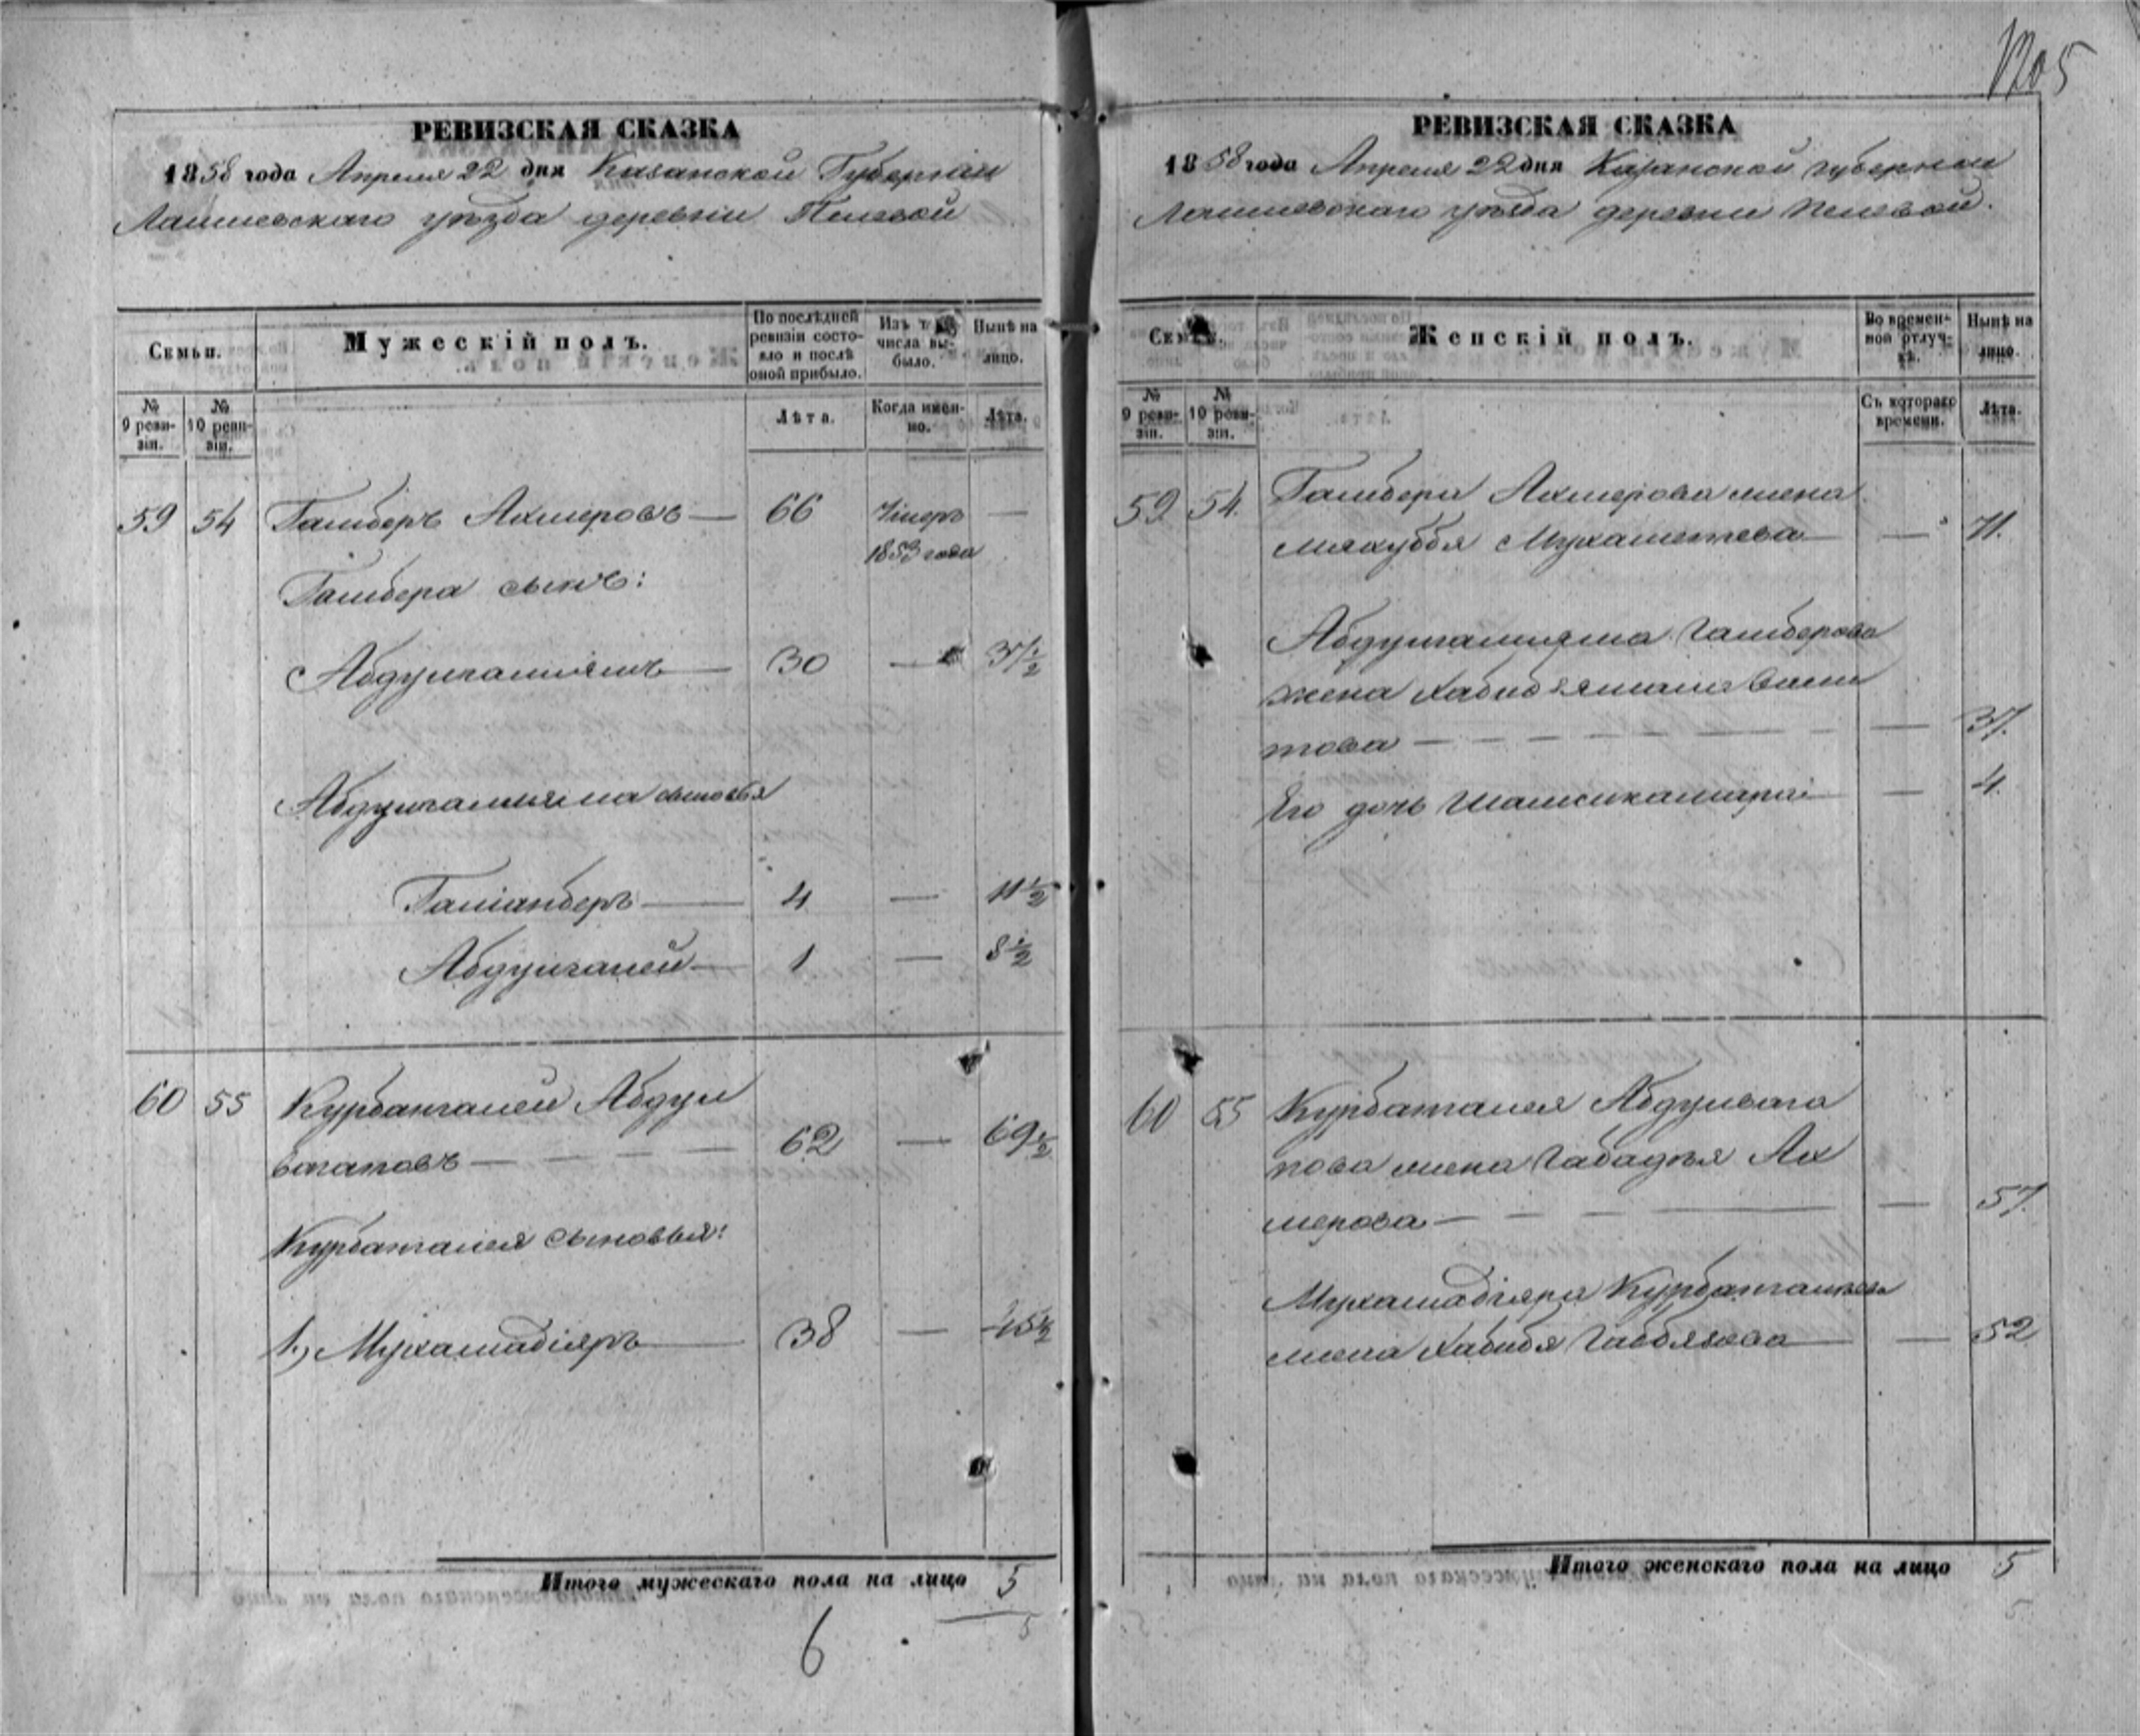 1205
РЕВИЗСКАЯ СКАЗКА
1858 года Апреля 22 дня Казанской Губерніи
Лаишевскаго уѣзда деревни
Семьи.
Мужескій полъ.
По послѣдней ревизіи состояло и послѣ оной прибыло.
Изъ того числа выбыло.
Нынѣ на лицо.
№ 9 ревизіи.
№ 10 ревизіи.
Лѣта.
Когда именно.
Лѣта.
59 54 Гамберъ Ахмеровъ — 66 Умеръ —
1853 года
Гамбера сынъ:
— 30 — 37 1/2
сыновья
4 — 11 1/2
Абдулганей — 1 — 8 1/2
60 55 Курбангалей Абдул
вагаповъ — — — — 62 — 69 1/2
Курбангалея сыновья:
1.) Мухамадіяръ — 38 — 45 1/2
Итого мужескаго пола на лицо 5
5
6
РЕВИЗСКАЯ СКАЗКА
1858 года Апреля 22 дня Казанской губерніи
Лаишевскаго уѣзда деревни
Семьи.
Женскій полъ.
Во временной отлучкѣ.
Нынѣ на лицо.
№ 9 ревизіи.
№ 10 ревизіи.
Съ котораго времени.
Лѣта.
59 54 Гамбера Ахмерова жена
— — 71.
Гамберова
жена
това — — — — — — — 37.
Его дочь — — 4
60 55 Курбангалея Абдулвага
пова жена Ах
мерова — — — — — 57
Мухамадіяра
жена Хабибя — — 52
Итого женскаго пола на лицо 5
5